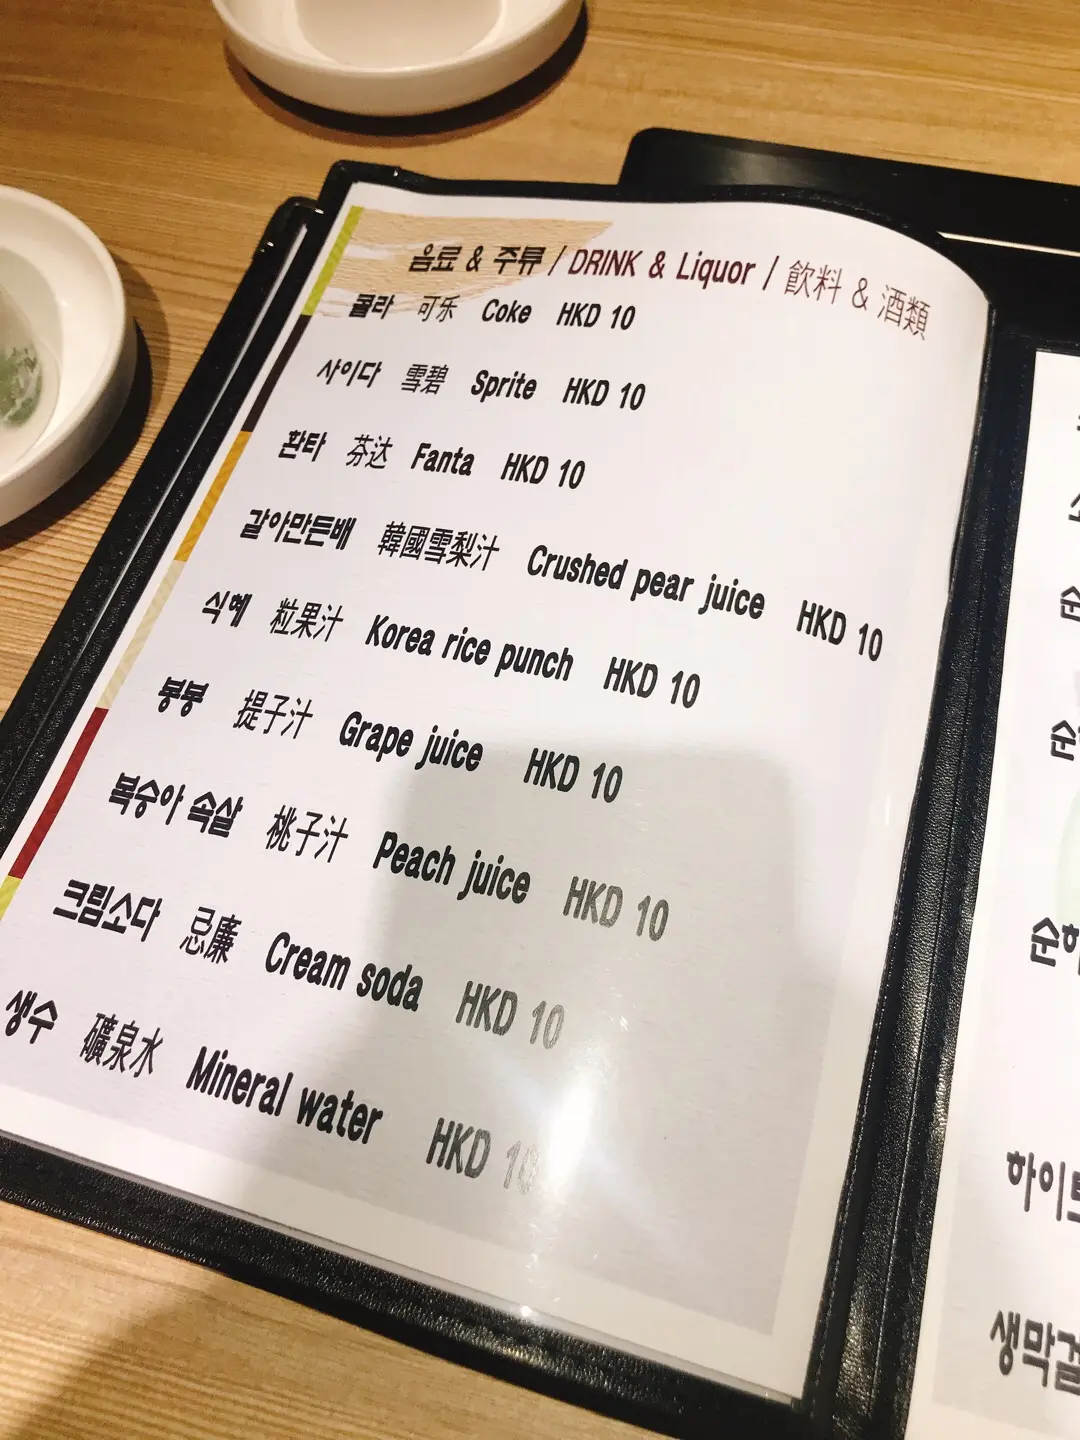 음료 & 주류 / DRINK & Liquor / 飲料 & 酒類
콜라 可乐 Coke HKD 10
사이다 雪碧 Sprite HKD 10
환타 芬达 Fanta HKD 10
갈아만든배 韓國雪梨汁 Crushed pear juice HKD 10
식혜 粒果汁 Korea rice punch HKD 10
봉봉 提子汁 Grape juice HKD 10
복숭아 속살 桃子汁 Peach juice HKD 10
크림소다 忌廉 Cream soda HKD 10
생수 礦泉水 Mineral water HKD 10
순
순
순하
하이트
생막걸